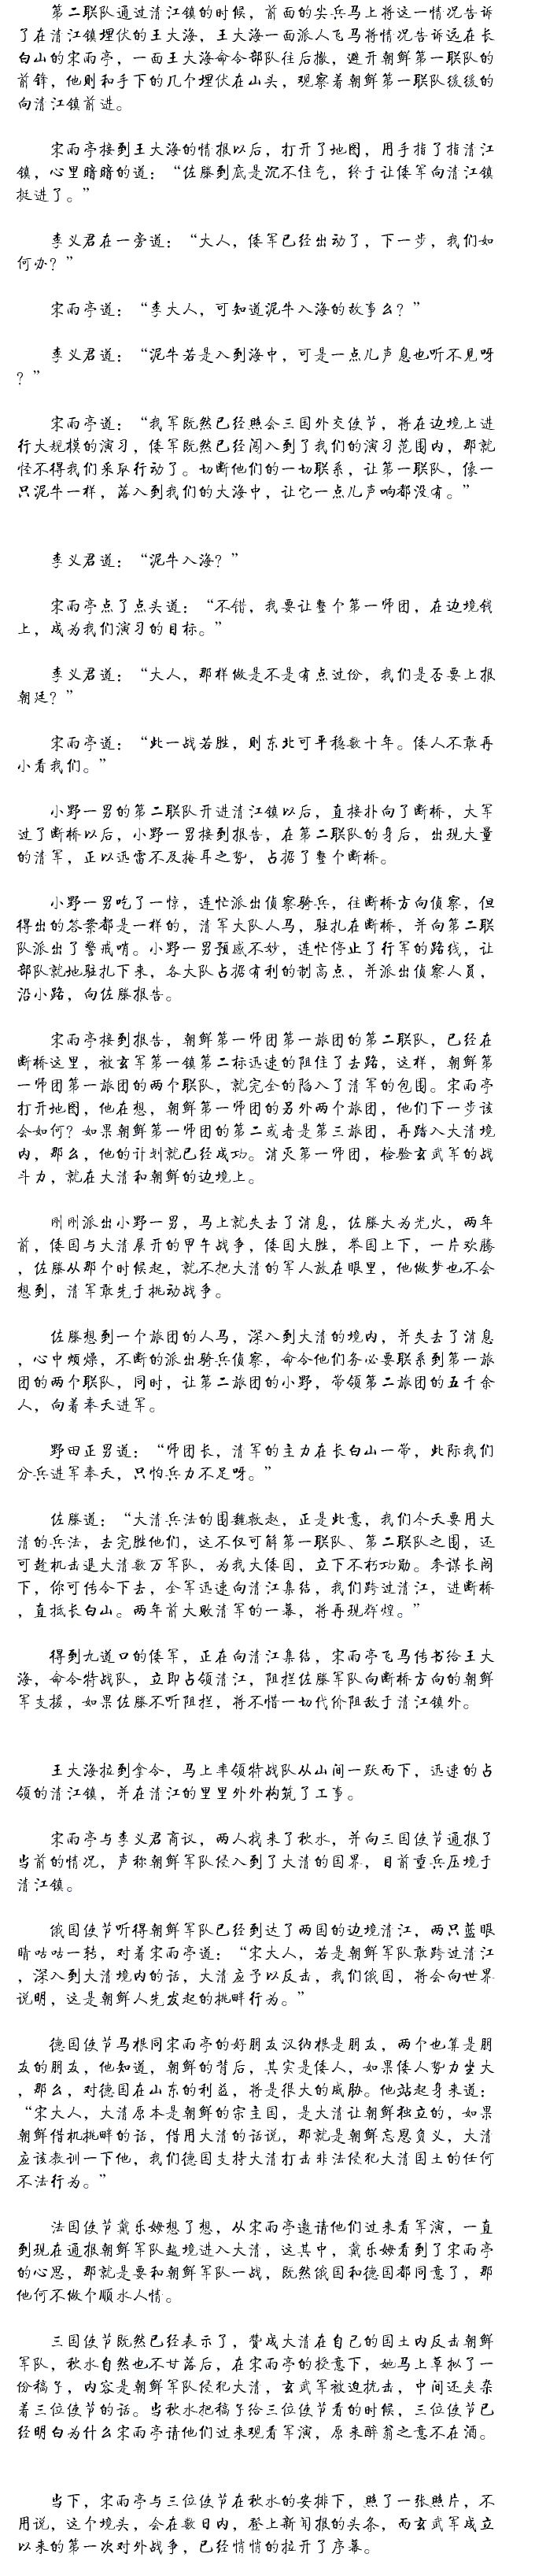 第二联队通过清江镇的时候，前面的尖兵马上将这一情况告诉
了在清江镇埋伏的王大海，王大海一面派人飞马将情况告诉远在长
白山的宋雨亭，一面王大海命令部队往后撤，避开朝鲜第一联队的
前锋，他则和手下的几个埋伏在山头，观察着朝鲜第一联队缓缓的
向清江镇前进。
宋雨亭接到王大海的情报以后，打开了地图，用手指了指清江
镇，心里暗暗的道：“佐滕到底是沉不住气，终于让倭军向清江镇
挺进了。”
李义君在一旁道：“大人，倭军已经出动了，下一步，我们如
何办？”
宋雨亭道：“李大人，可知道泥牛入海的故事么？”
李义君道：“泥牛若是入到海中，可是一点儿声息也听不见呀
？”
宋雨亭道：“我军既然已经照会三国外交使节，将在边境上进
行大规模的演习，倭军既然已经闯入到了我们的演习范围内，那就
怪不得我们采取行动了。切断他们的一切联系，让第一联队，像一
只泥牛一样，落入到我们的大海中，让它一点儿声响都没有。”
李义君道：“泥牛入海？”
宋雨亭点了点头道：“不错，我要让整个第一师团，在边境线
上，成为我们演习的目标。”
李义君道：“大人，那样做是不是有点过份，我们是否要上报
朝廷？”
宋雨亭道：“此一战若胜，则东北可平稳数十年。倭人不敢再
小看我们。”
小野一男的第二联队开进清江镇以后，直接扑向了断桥，大军
过了断桥以后，小野一男接到报告，在第二联队的身后，出现大量
的清军，正以迅雷不及掩耳之势，占据了整个断桥。
小野一男吃了一惊，连忙派出侦察骑兵，往断桥方向侦察，但
得出的答案都是一样的，清军大队人马，驻扎在断桥，并向第二联
队派出了警戒哨。小野一男预感不妙，连忙停止了行军的路线，让
部队就地驻扎下来，各大队占据有利的制高点，并派出侦察人员，
沿小路，向佐滕报告。
宋雨亭接到报告，朝鲜第一师团第一旅团的第二联队，已经在
断桥这里，被玄军第一镇第二标迅速的阻住了去路，这样，朝鲜第
一师团第一旅团的两个联队，就完全的陷入了清军的包围。宋雨亭
打开地图，他在想，朝鲜第一师团的另外两个旅团，他们下一步该
会如何？如果朝鲜第一师团的第二或者是第三旅团，再踏入大清境
内，那么，他的计划就已经成功。消灭第一师团，检验玄武军的战
斗力，就在大清和朝鲜的边境上。
刚刚派出小野一男，马上就失去了消息，佐滕大为光火，两年
前，倭国与大清展开的甲午战争，倭国大胜，举国上下，一片欢腾
，佐滕从那个时候起，就不把大清的军人放在眼里，他做梦也不会
想到，清军敢先于挑动战争。
佐滕想到一个旅团的人马，深入到大清的境内，并失去了消息
，心中烦燥，不断的派出骑兵侦察，命令他们务必要联系到第一旅
团的两个联队，同时，让第二旅团的小野，带领第二旅团的五千余
人，向着奉天进军。
野田正男道：“师团长，清军的主力在长白山一带，此际我们
分兵进军奉天，只怕兵力不足呀。”
佐滕道：“大清兵法的围魏救赵，正是此意，我们今天要用大
清的兵法，去完胜他们，这不仅可解第一联队、第二联队之围，还
可趁机击退大清数万军队，为我大倭国，立下不朽功勋。参谋长阁
下，你可传令下去，全军迅速向清江集结，我们跨过清江，进断桥
，直抵长白山。两年前大败清军的一幕，将再现辉煌。”
得到九道口的倭军，正在向清江集结，宋雨亭飞马传书给王大
海，命令特战队，立即占领清江，阻拦佐滕军队向断桥方向的朝鲜
军支援，如果佐滕不听阻拦，将不惜一切代价阻敌于清江镇外。
王大海拉到拿令，马上率领特战队从山间一跃而下，迅速的占
领的清江镇，并在清江的里里外外构筑了工事。
宋雨亭与李义君商议，两人找来了秋水，并向三国使节通报了
当前的情况，声称朝鲜军队侵入到了大清的国界，目前重兵压境于
清江镇。
俄国使节听得朝鲜军队已经到达了两国的边境清江，两只蓝眼
睛咕咕一转，对着宋雨亭道：“宋大人，若是朝鲜军队敢跨过清江
，深入到大清境内的话，大清应予以反击，我们俄国，将会向世界
说明，这是朝鲜人先发起的挑畔行为。”
德国使节马根同宋雨亭的好朋友汉纳根是朋友，两个也算是朋
友的朋友，他知道，朝鲜的背后，其实是倭人，如果倭人势力坐大
，那么，对德国在山东的利益，将是很大的威胁。他站起身来道：
“宋大人，大清原本是朝鲜的宗主国，是大清让朝鲜独立的，如果
朝鲜借机挑畔的话，借用大清的话说，那就是朝鲜忘恩负义，大清
应该教训一下他，我们德国支持大清打击非法侵犯大清国土的任何
不法行为。”
法国使节戴乐姆想了想，从宋雨亭邀请他们过来看军演，一直
到现在通报朝鲜军队越境进入大清，这其中，戴乐姆看到了宋雨亭
的心思，那就是要和朝鲜军队一战，既然俄国和德国都同意了，那
他何不做个顺水人情。
三国使节既然已经表示了，赞成大清在自己的国土内反击朝鲜
军队，秋水自然也不甘落后，在宋雨亭的授意下，她马上草拟了一
份稿子，内容是朝鲜军队侵犯大清，玄武军被迫抗击，中间还夹杂
着三位使节的话。当秋水把稿子给三位使节看的时候，三位使节已
经明白为什么宋雨亭请他们过来观看军演，原来醉翁之意不在酒。
当下，宋雨亭与三位使节在秋水的安排下，照了一张照片，不
用说，这个境头，会在数日内，登上新闻报的头条，而玄武军成立
以来的第一次对外战争，已经悄悄的拉开了序幕。